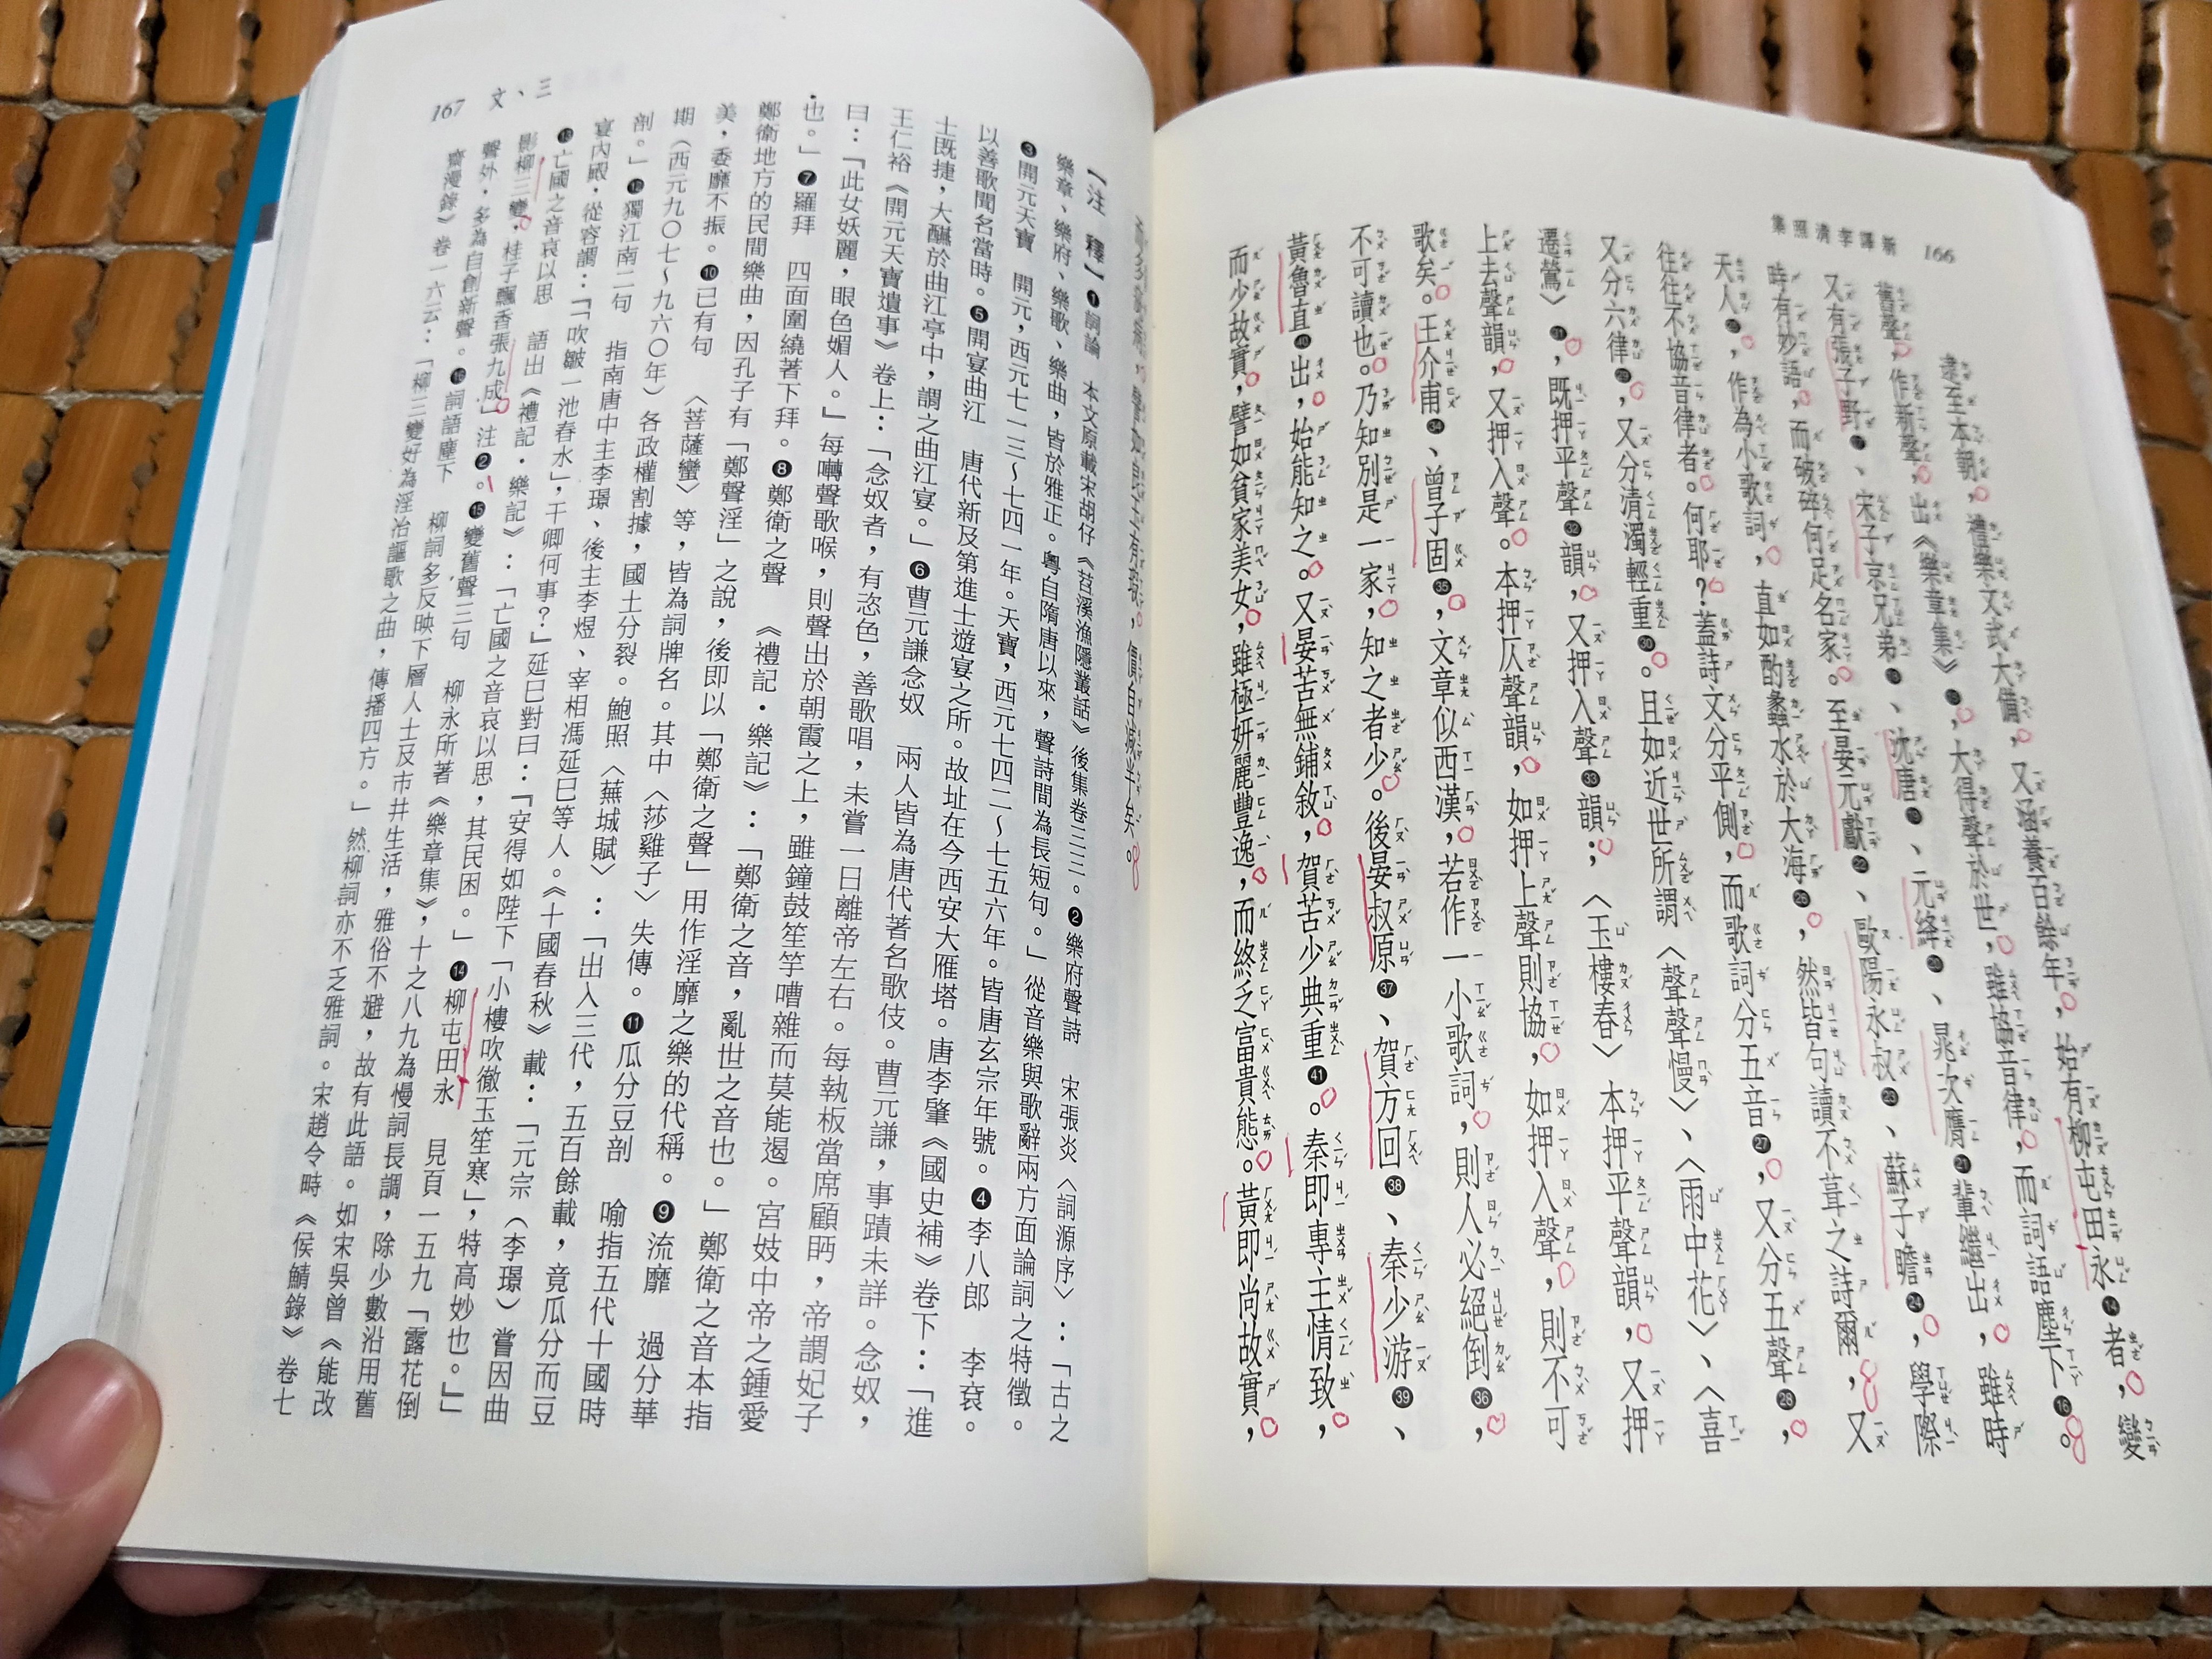 新譯李清照集 166
逮至本朝，禮樂文武大備，又涵養百餘年，始有柳屯田永⓮者，變
舊聲，作新聲，出《樂章集》⓯，大得聲於世，雖協音律，而詞語塵下⓰。
又有張子野⓱、宋子京兄弟⓲、沈唐⓳、元絳⓴、晁次膺㉑輩繼出，雖時
時有妙語，而破碎何足名家。至晏元獻㉒、歐陽永叔㉓、蘇子瞻㉔，學際
天人㉕，作為小歌詞，直如酌蠡水於大海㉖，然皆句讀不葺之詩爾，又
往往不協音律者。何耶？蓋詩文分平側，而歌詞分五音㉗，又分五聲㉘，
又分六律㉙，又分清濁輕重㉚。且如近世所謂〈聲聲慢〉、〈雨中花〉、〈喜
遷鶯〉㉛，既押平聲㉜韻，又押入聲㉝韻；〈玉樓春〉本押平聲韻，又押
上去聲韻，又押入聲。本押仄聲韻，如押上聲則協，如押入聲，則不可
歌矣。王介甫㉞、曾子固㉟，文章似西漢，若作一小歌詞，則人必絕倒㊱，
不可讀也。乃知別是一家，知之者少。後晏叔原㊲、賀方回㊳、秦少游㊴、
黃魯直㊵出，始能知之。又晏苦無鋪敘，賀苦少典重㊶。秦即專主情致，
而少故實，譬如貧家美女，雖極妍麗豐逸，而終乏富貴態。黃即尚故實，
而多疵病，譬如良玉有瑕，價自減半矣。
【注　釋】❶詞論　本文原載宋胡仔《苕溪漁隱叢話》後集卷三三。❷樂府聲詩　宋張炎〈詞源序〉：「古之
樂章、樂府、樂歌、樂曲，皆於雅正。粵自隋唐以來，聲詩間為長短句。」從音樂與歌辭兩方面論詞之特徵。
❸開元天寶　開元，西元七一三～七四一年。天寶，西元七四二～七五六年。皆唐玄宗年號。❹李八郎　李袞。
以善歌聞名當時。❺開宴曲江　唐代新及第進士遊宴之所。故址在今西安大雁塔。唐李肇《國史補》卷下：「進
士既捷，大讌於曲江亭中，謂之曲江宴。」❻曹元謙念奴　兩人皆為唐代著名歌伎。曹元謙，事蹟未詳。念奴，
王仁裕《開元天寶遺事》卷上：「念奴者，有恣色，善歌唱，未嘗一日離帝左右。每執板當席顧眄，帝謂妃子
曰：「此女妖麗，眼色媚人。」每囀聲歌喉，則聲出於朝霞之上，雖鐘鼓笙竽嘈雜而莫能遏。宮妓中帝之鍾愛
也。」❼羅拜　四面圍繞著下拜。❽鄭衛之聲　《禮記・樂記》：「鄭衛之音，亂世之音也。」鄭衛之音本指
鄭衛地方的民間樂曲，因孔子有「鄭聲淫」之說，後即以「鄭衛之聲」用作淫靡之樂的代稱。❾流靡　過分華
美，委靡不振。❿已有句　〈菩薩蠻〉等，皆為詞牌名。其中〈莎雞子〉失傳。⓫瓜分豆剖　喻指五代十國時
期（西元九〇七～九六〇年）各政權割據，國土分裂。鮑照〈蕪城賦〉：「出入三代，五百餘載，竟瓜分而豆
剖。」⓬獨江南二句　指南唐中主李璟、後主李煜、宰相馮延巳等人。《十國春秋》載：「元宗（李璟）嘗因曲
宴內殿，從容謂：「『吹皺一池春水』，干卿何事？」延巳對曰：「安得如陛下「小樓吹徹玉笙寒」，特高妙也。」」
⓭亡國之音哀以思　語出《禮記・樂記》：「亡國之音哀以思，其民困。」⓮柳屯田永　見頁一五九「露花倒
影柳三變，桂子飄香張九成」注❷。⓯變舊聲三句　柳永所著《樂章集》，十之八九為慢詞長調，除少數沿用舊
聲外，多為自創新聲。⓰詞語塵下　柳詞多反映下層人士反市井生活，雅俗不避，故有此語。如宋吳曾《能改
齋漫錄》卷一六云：「柳三變好為淫冶謳歌之曲，傳播四方。」然柳詞亦不乏雅詞。宋趙令時《侯鯖錄》卷七
三、文 167